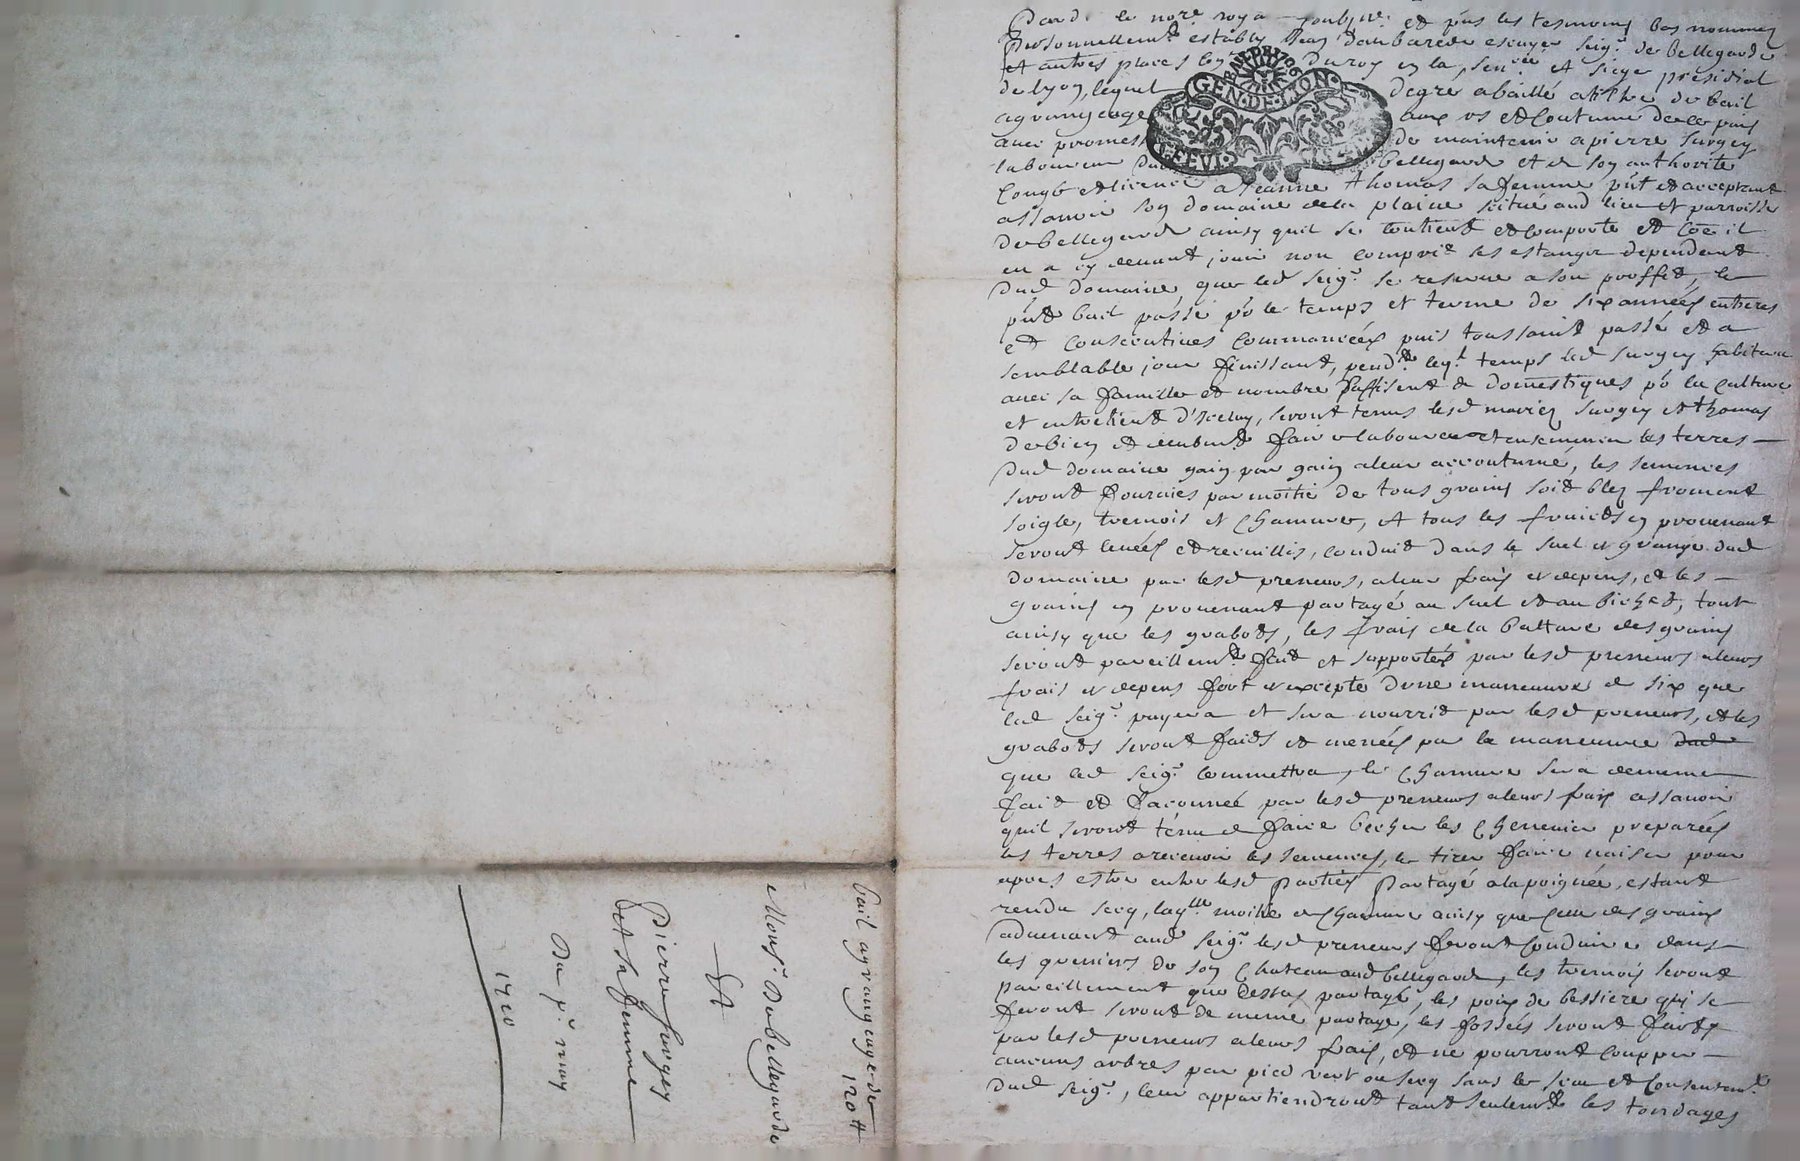 Pard. le nore. roya soubzne. et pńs les tesmoins bas nommez
personnellemt. estably Dambarede escuyer Seigr. de bellegarde
et autres places du roy en la sen.cee et siege presidial
de lyon, lequel degre abaillé atiltre de bail
agrangeage aux vs et Coutume de ce pais
avec promess de maintenir a pierre Surgey
laboureur du bellegarde et de son authorite
Congé et licence a Jeanne thomas sa femme pńt et acceptant
assavoir son domaine de la plaine scitué aud lieu et parroisse
de bellegarde ainsy quil se contient et comporte et coe il
en a cy devant joui non compris les estangs dependant
dud domaine que led Seigr. se reserve a son proffit, le
pńt bail passé po le temps et terme de six années entieres
et consecutives commancées puis toussaint passé et a
semblable jour finissant, pendt. leql. temps led surgey habitera
avec sa famille et nombre suffisent de domestiques po la Culture
et entretient d'Iceluy, seront tenus lesd mariez surgey et thomas
de bien et deubmt. faire labourer et ensemencer les terres
dud domaine gain par gain a leur accoutumé, les semences
seront fournies par moitié de tous grains soit blez froment
soigle, tremois et Chanvre, et tous les fruicts en provenant
seront levées et recuillis, conduit dans le suel et grange dud
domaine par lesd preneurs, a leur frais et depens, et les
grains en provenant partagé au suel et au bichet, tout
ainsy que les grabots, les frais de la batture des grains
seront pareillemt. fait et supportés par lesd preneurs a leurs
frais et depens fort et excepté dune manoeuvre de six que
led seigr. payera et sera nourrit par lesd preneurs, et les
grabots seront faits et menées par la manoeuvre dud
que led Seigr. commettra, le Chanvre sera de meme
fait et faconneé par lesd preneurs a leurs frais assavoir
quil seront ténu de faire becher les Chenevier preparées
les terres a recevoir les semences, le tirer faire naiser pour
apres estre entre lesd parties partagé a la poignée, estant
rendu secq, laqlle. moitié de Chanvre ainsy que celle des grains
advenant aud Seigr. lesd preneurs feront conduire dans
les greniers de son Chateau aud bellegarde, les tremois seront
pareillement que dessus partagé, les pois de bessiere qui se
feront seront de meme partagé, les fossées seront faits
par lesd preneurs a leurs frais, et ne pourront coupper
aucuns arbres par pied vert ou secq sans le sceu et Consentemt.
dud Seigr., leur appartiendront tant seulemt. les tondages
GEN·DE·LION
bail agrangeage de 120 tt
Monsr. De bellegarde
Et
Pierre Surgey
et sa femme
Du pr. may
1710